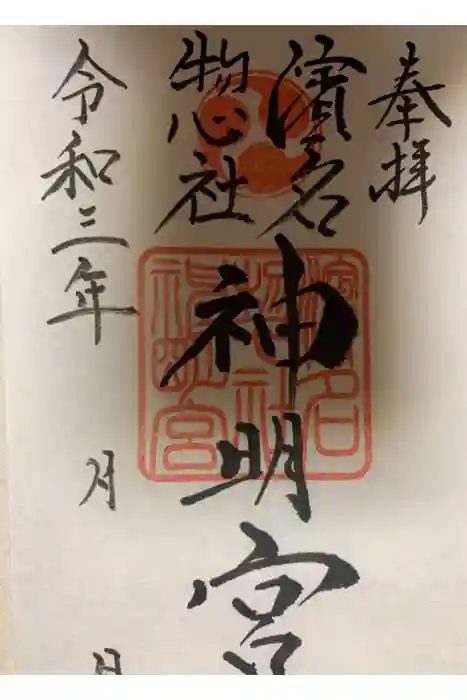 奉拝
濱名
惣社
神明宮
令和三年　月　日
濱名
惣社
神明宮